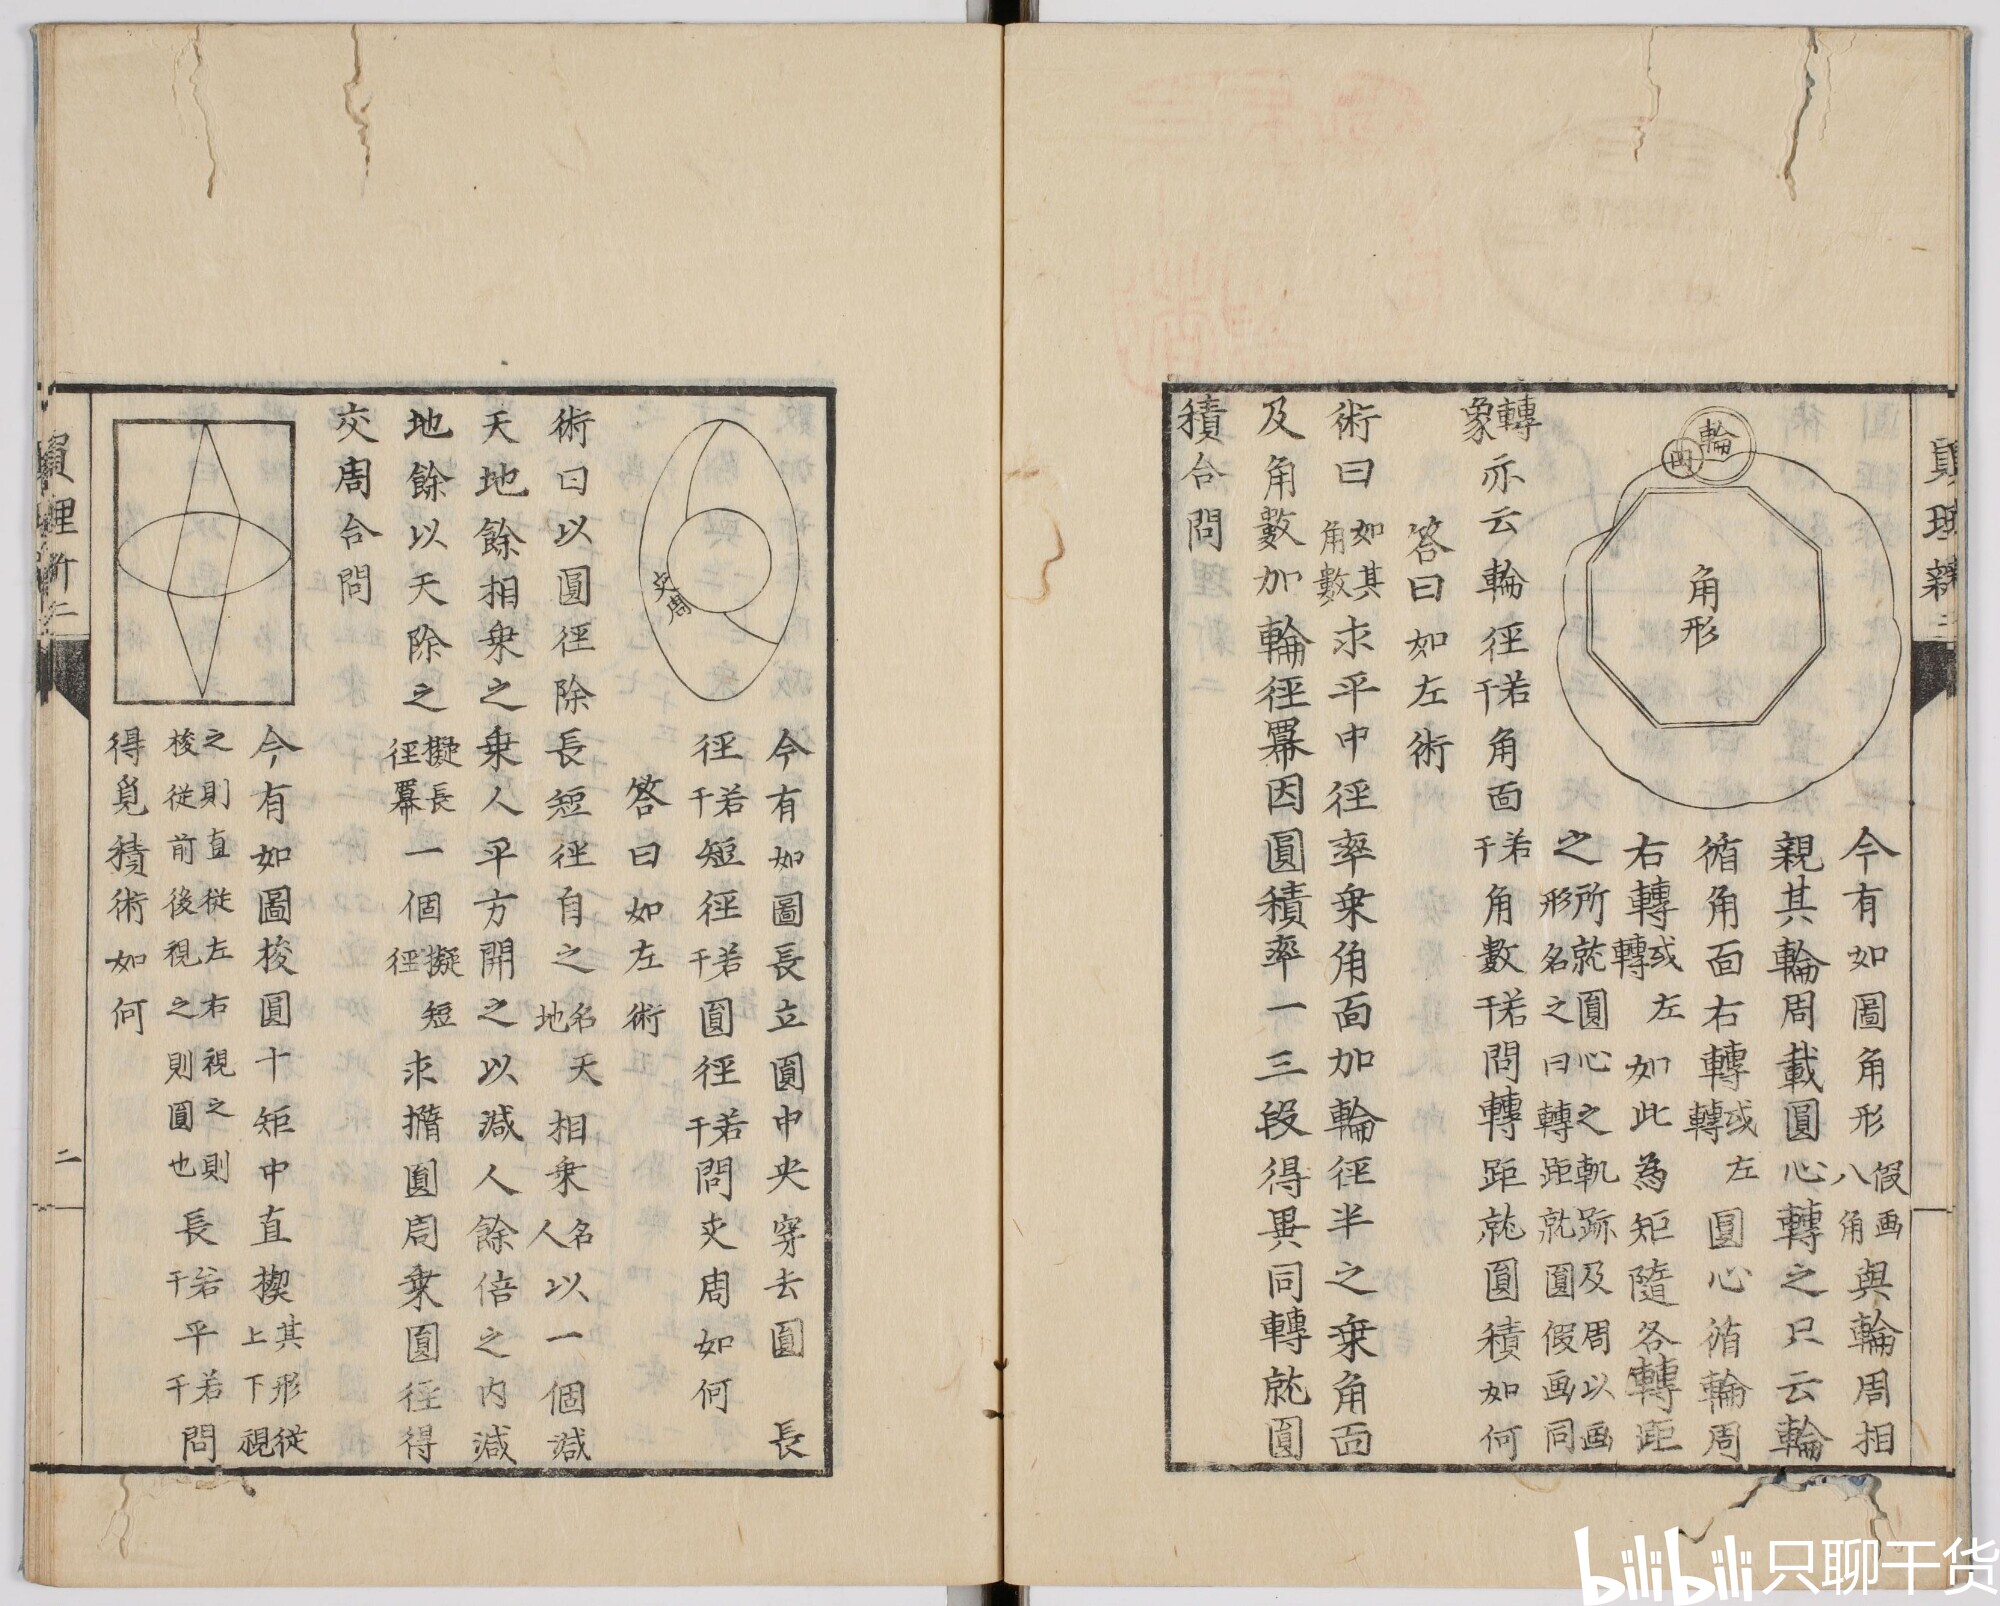 輪
円
角形
今有如圖角形假画八角與輪周相
親其輪周載圓心轉之只云輪
循角面右轉或左轉圓心循輪周
右轉或左轉如此為矩隨各轉距
之所就圓心之軌跡及周以画形名之曰轉距就圓假画同
轉象亦云輪徑若干角面若干角數若干問轉距就圓積如何
答曰如左術
術曰如其角數求平中徑率乗角面加輪徑半之乗角面
及角數加輪徑羃因圓積率一三段得異同轉就圓
積合問
交周
今有如圖長立圓中央穿去圓長
徑若干短徑若干圓徑若干問交周如何
答曰如左術
術曰以圓徑除長短徑自之名天地相乗名人以一個減
天地餘相乗之乗人平方開之以減人餘倍之内減
地餘以天除之擬長徑羃一個擬短徑求撱圓周乗圓徑得
交周合問
今有如圖梭圓十矩中直楔其形従上下視
之則直従左右視之則梭従前後視之則圓也長若干平若干問
得覓積術如何
二